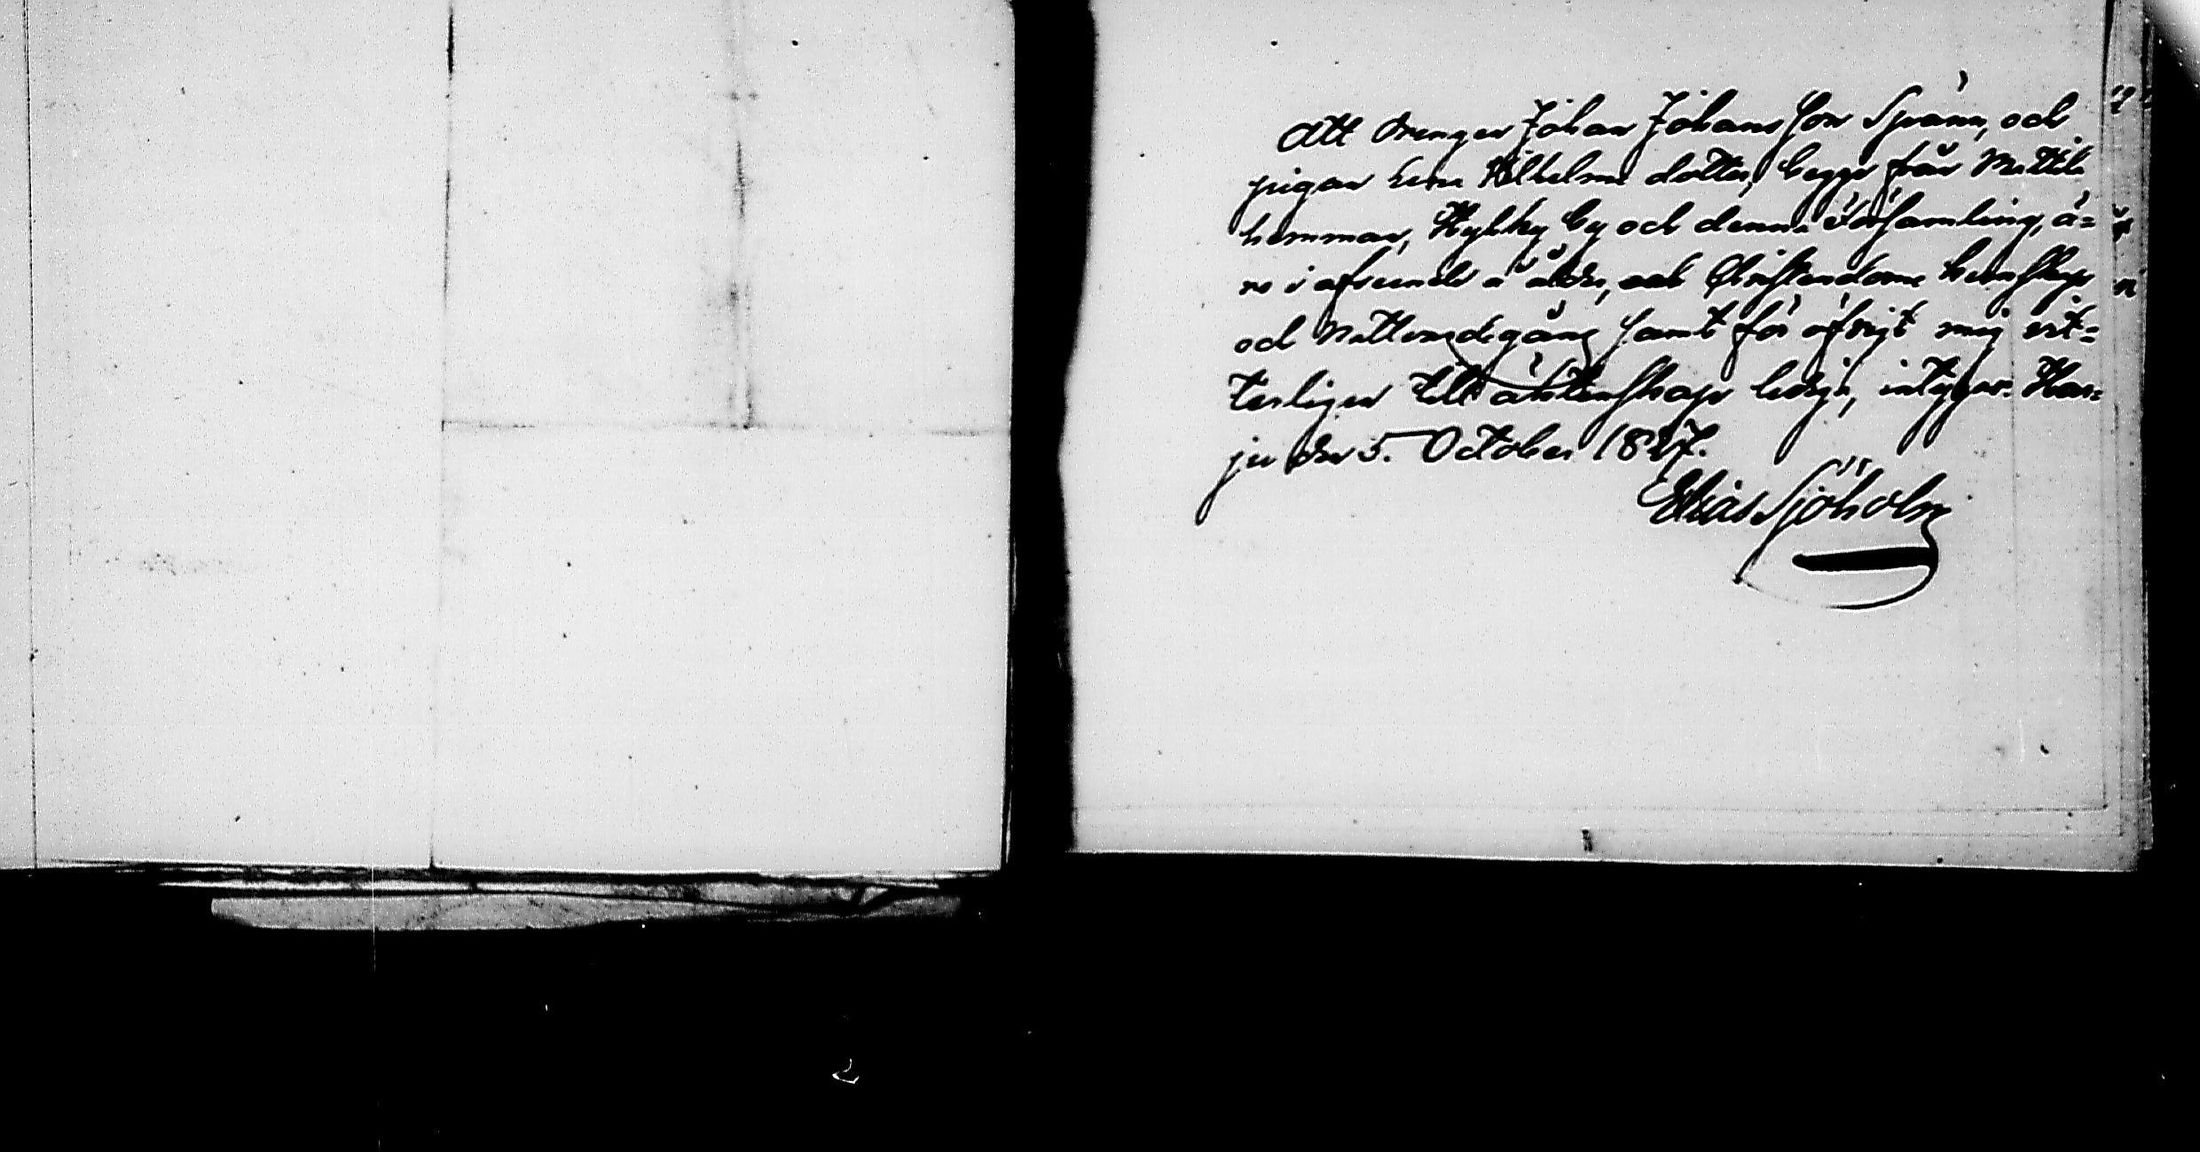 Att drengen Johan Johansson Spänn, och
pigan Lena Wilhelms dotter, begge från Mattila
hemman, Kylky by och denna Församling, ä=
ro i afseende å ålder, och Christendoms kunskap
och Nattvardsgång samt för öfrigt mig vit=
terligen till äktenskap ledige, intygar. Har=
ju den 5. October 1827.
Elias Sjöholm